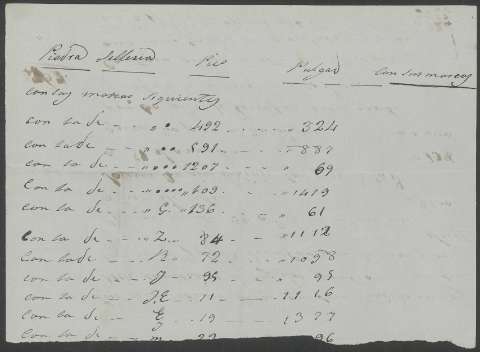 Piedra Silleria Pies Pulgad con sus marcas
con las marcas siguientes
con la de - - „ •• 492 - - - - „ 324
con la de - - „ ••• 591 - - - 887
con la de - - „ •••• 1207 - - - „ 69
Con la de - - „ ••••• „ 109 - - - „ 1419
con la de - - „ G. „ 136 - - - „ 61
Con la de - - „ Z. - - 84 - - - „ 1112
Con la de - - „ R - - 72 - - - „ 1058
con la de - - „ J - - 95 - - - „ 95
con la de - - „ J.E - 11 - - - 1116
Con la de - - „ E - - 19 - - - 1377
Con la de - - „ m - - 22 - - - 96